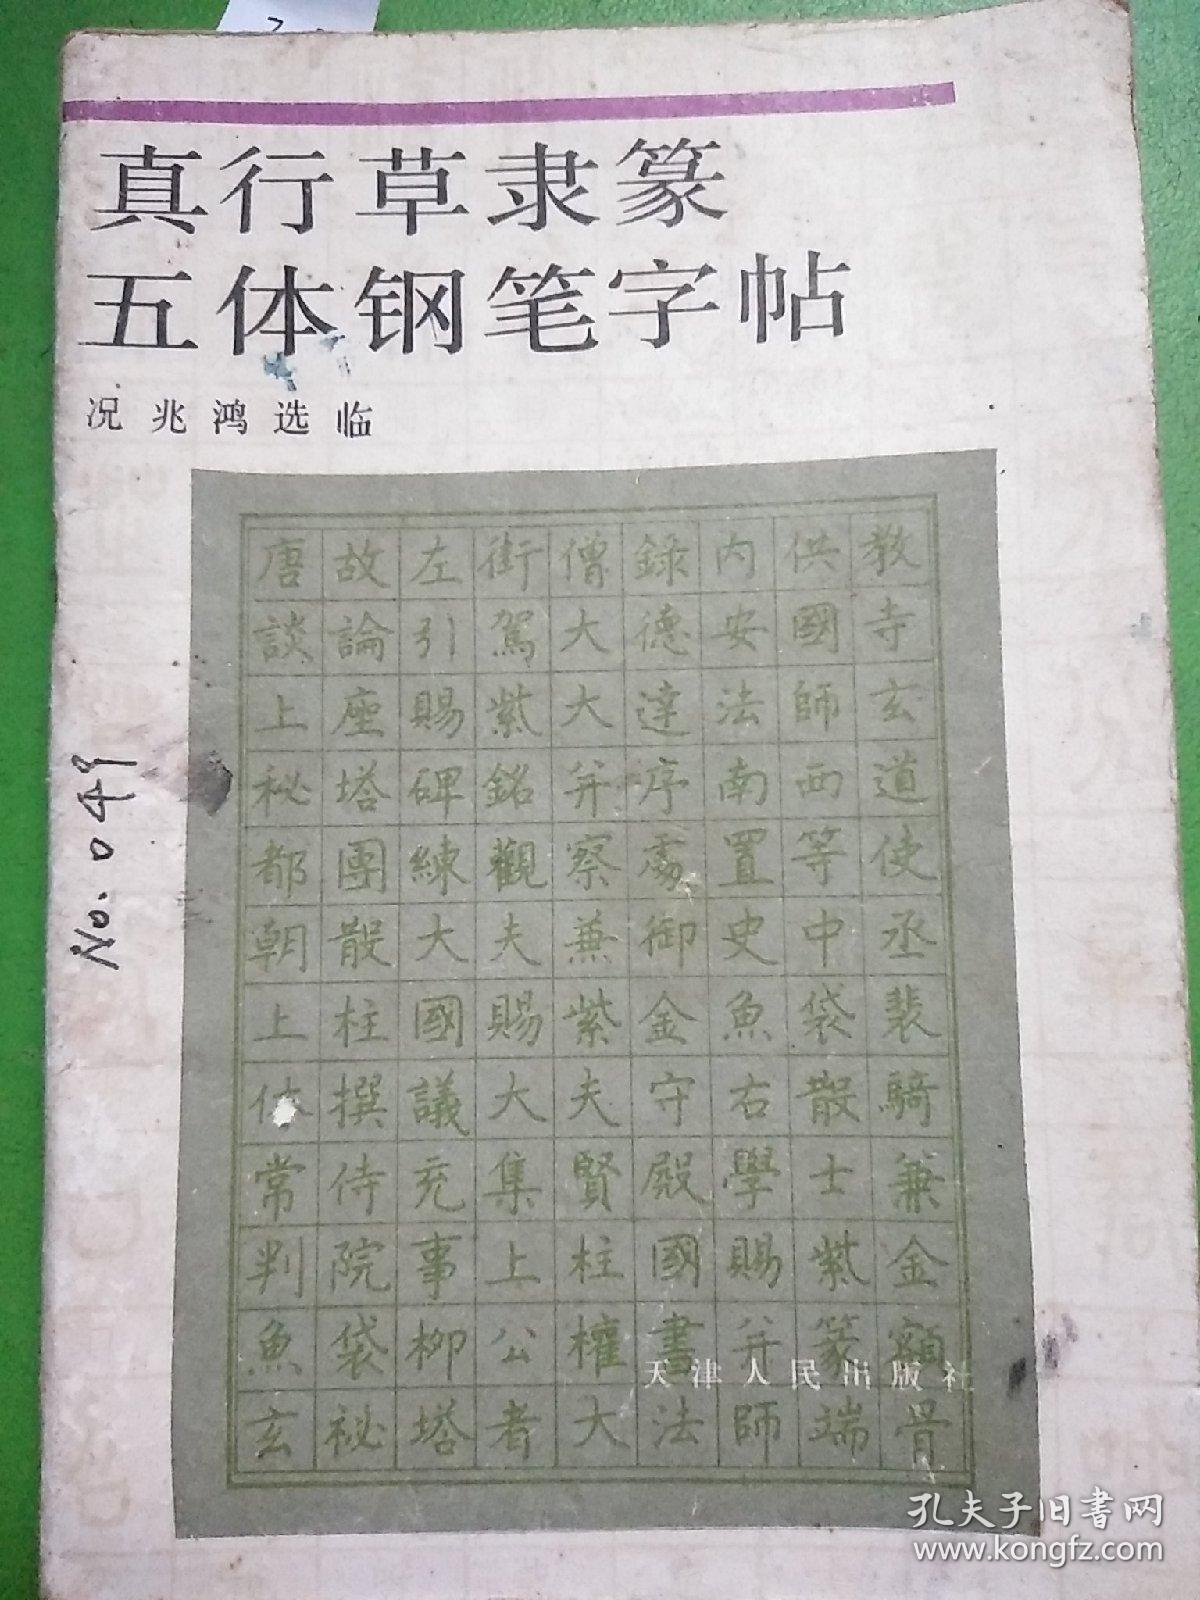 真行草隶篆
五体钢笔字帖
况兆鸿选临
唐故左街僧録内供教
談論引駕大德安國寺
上座賜紫大達法師玄
秘塔碑銘并序南西道
都團練觀察處置等使
朝散大夫兼御史中丞
上柱國賜紫金魚袋裴
休撰議大夫守右散騎
常侍充集賢殿學士兼
判院事上柱國賜紫金
魚袋柳公權書并篆額
玄祕塔者大法師端骨
天津人民出版社
No.049
孔夫子旧书网
www.kongfz.com